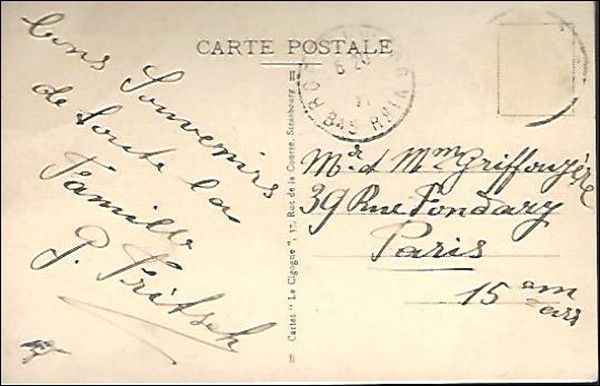 CARTE POSTALE
Bons Souvenirs
de toute la
Famille
G. Fritsch
BAS RHIN
Cartes "La Cigogne", 17, Rue de la Course, Strasbourg.
Mr et Mme Griffouzère
39 Rue Fondary
Paris
15 em
arr